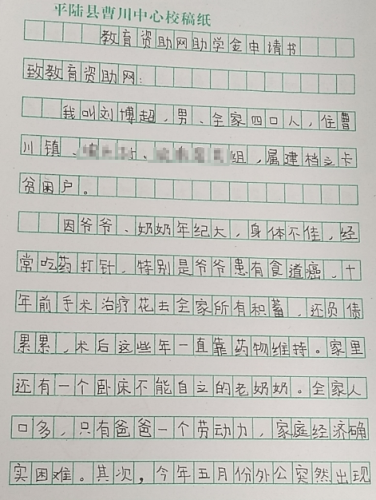 平陆县曹川中心校稿纸
教育资助网助学金申请书
致教育资助网:
我叫刘博超，男、全家四口人，住曹
川镇、组，属建档立卡
贫困户。
因爷爷、奶奶年纪大，身体不佳，经
常吃药打针，特别是爷爷患有食道癌，十
年前手术治疗花去全家所有积蓄，还负债
累累，术后这些年一直靠药物维持。家里
还有一个卧床不能自立的老奶奶。全家人
口多，只有爸爸一个劳动力，家庭经济确
实困难。其次，今年五月份外公突然出现